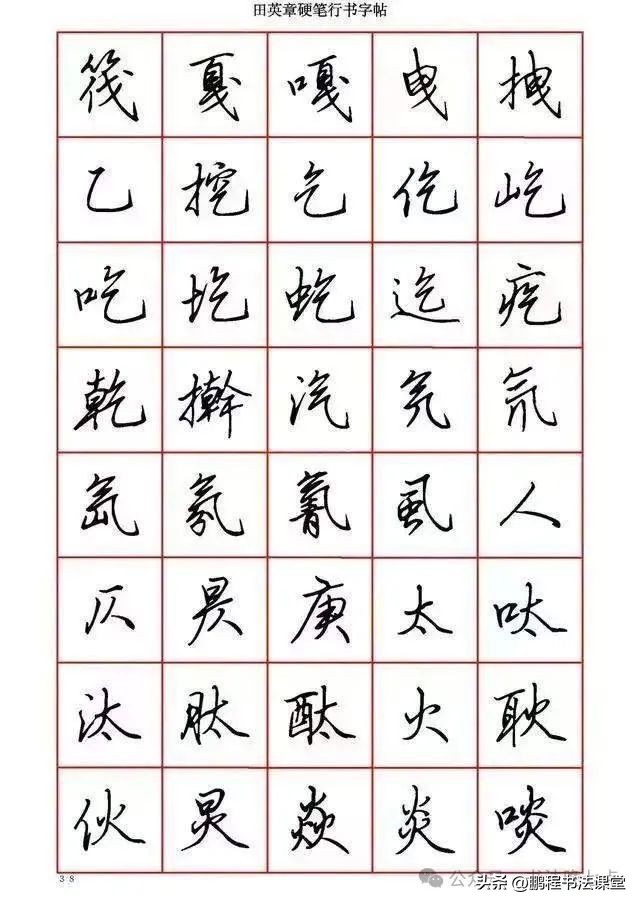 田英章硬笔行书字帖
筏 戛 嘎 曳 拽
乙 挖 乞 仡 屹
吃 圪 虼 迄 疙
乾 擀 汽 氕 氘
氙 氛 氰 虱 人
仄 昃 庚 太 呔
汰 肽 酞 火 耿
伙 炅 焱 炎 啖
38
头条 @鹏程书法课堂